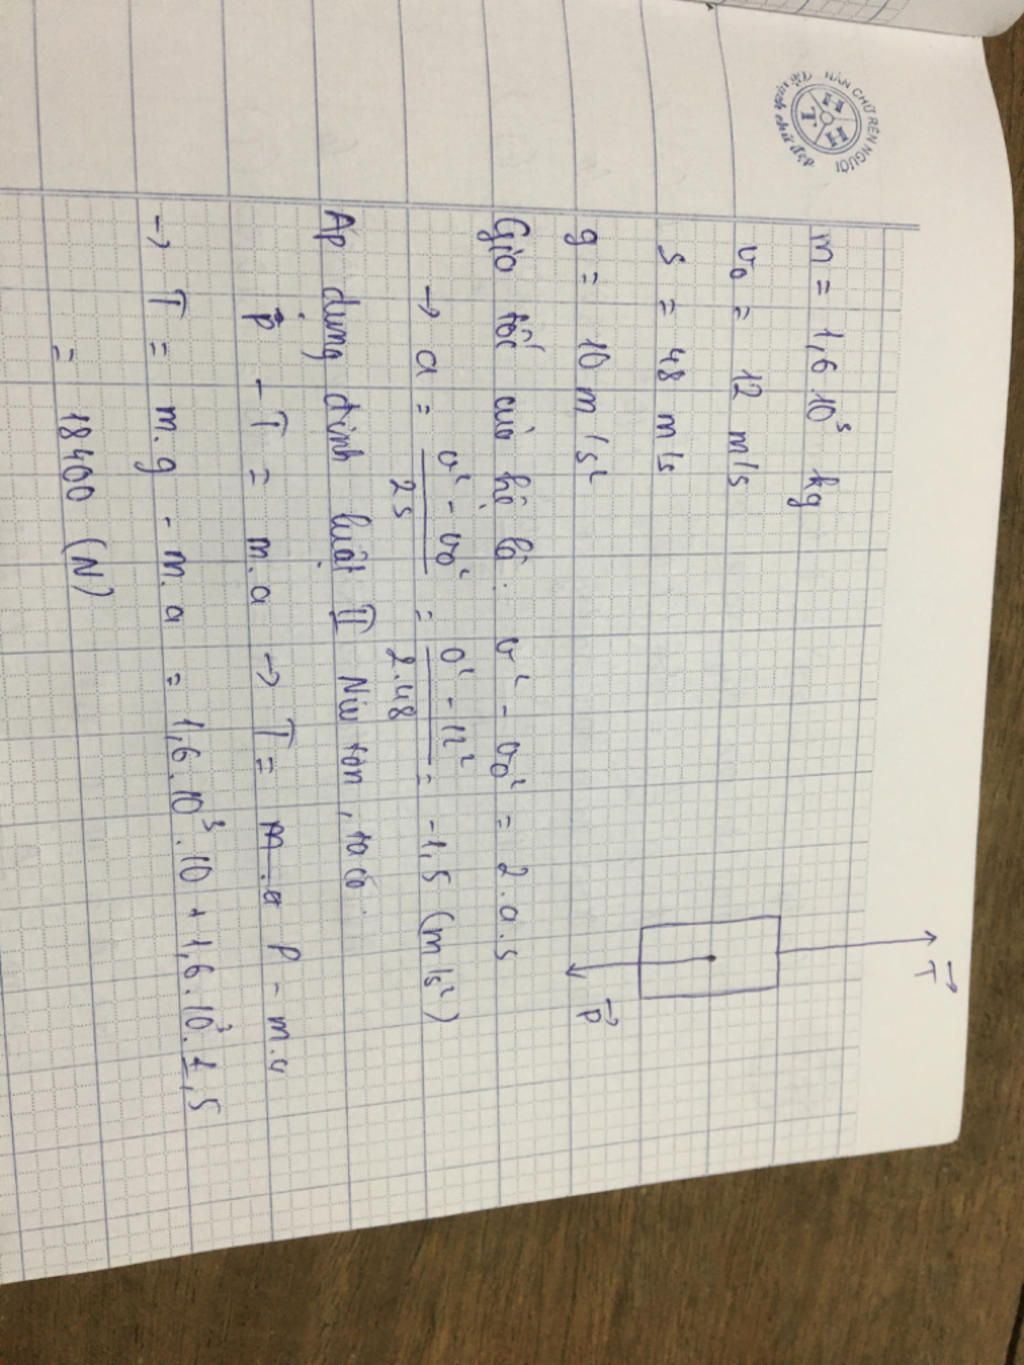 NẮN CHỮ RÈN NGƯỜI
H T H
m = 1,6.10³ kg
v₀ = 12 m/s
s = 48 m/s
g = 10 m/s²
T
P
Gia tốc của hệ là: v² - v₀² = 2.a.s
→ a = (v² - v₀²)/(2s) = (0² - 12²)/(2.48) = -1,5 (m/s²)
Áp dụng định luật II Niu tơn, ta có:
P - T = m.a → T = P - m.a
→ T = m.g - m.a = 1,6.10³.10 + 1,6.10³.1,5
= 18400 (N)